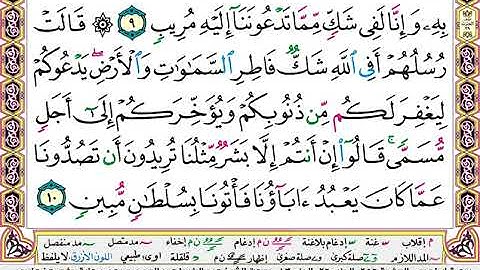 بِهِۦ وَإِنَّا لَفِى شَكٍّ مِّمَّا تَدْعُونَنَآ إِلَيْهِ مُرِيبٍ ٩ ۞ قَالَتْ
رُسُلُهُمْ أَفِى ٱللَّهِ شَكٌّ فَاطِرِ ٱلسَّمَٰوَٰتِ وَٱلْأَرْضِ ۖ يَدْعُوكُمْ
لِيَغْفِرَ لَكُم مِّن ذُنُوبِكُمْ وَيُؤَخِّرَكُمْ إِلَىٰٓ أَجَلٍ
مُّسَمًّى ۚ قَالُوٓا۟ إِنْ أَنتُمْ إِلَّا بَشَرٌ مِّثْلُنَا تُرِيدُونَ أَن تَصُدُّونَا
عَمَّا كَانَ يَعْبُدُ ءَابَآؤُنَا فَأْتُونَا بِسُلْطَٰنٍ مُّبِينٍ ١٠
إقلاب غنة إدغام بلاغنة إدغام إخفاء مد متصل مد منفصل
المد اللازم صلة كبرى صلة صغرى إظهار قلقلة طبيعي اللون الأزرق لا يلفظ